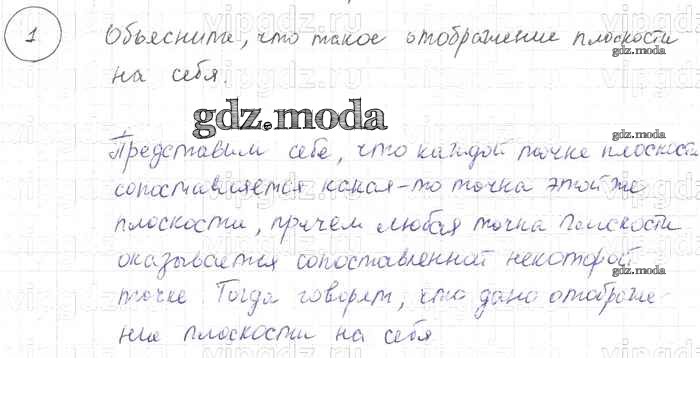 1 Объясните, что такое отображение плоскости
gdz.moda
на себя.
gdz.moda
gdz.moda
Представим себе, что каждой точке плоскости
сопоставляется какая-то точка этой же
gdz.moda
плоскости, причем любая точка плоскости
оказывается сопоставленной некоторой
gdz.moda
точке Тогда говорят, что дано отображе-
ние плоскости на себя